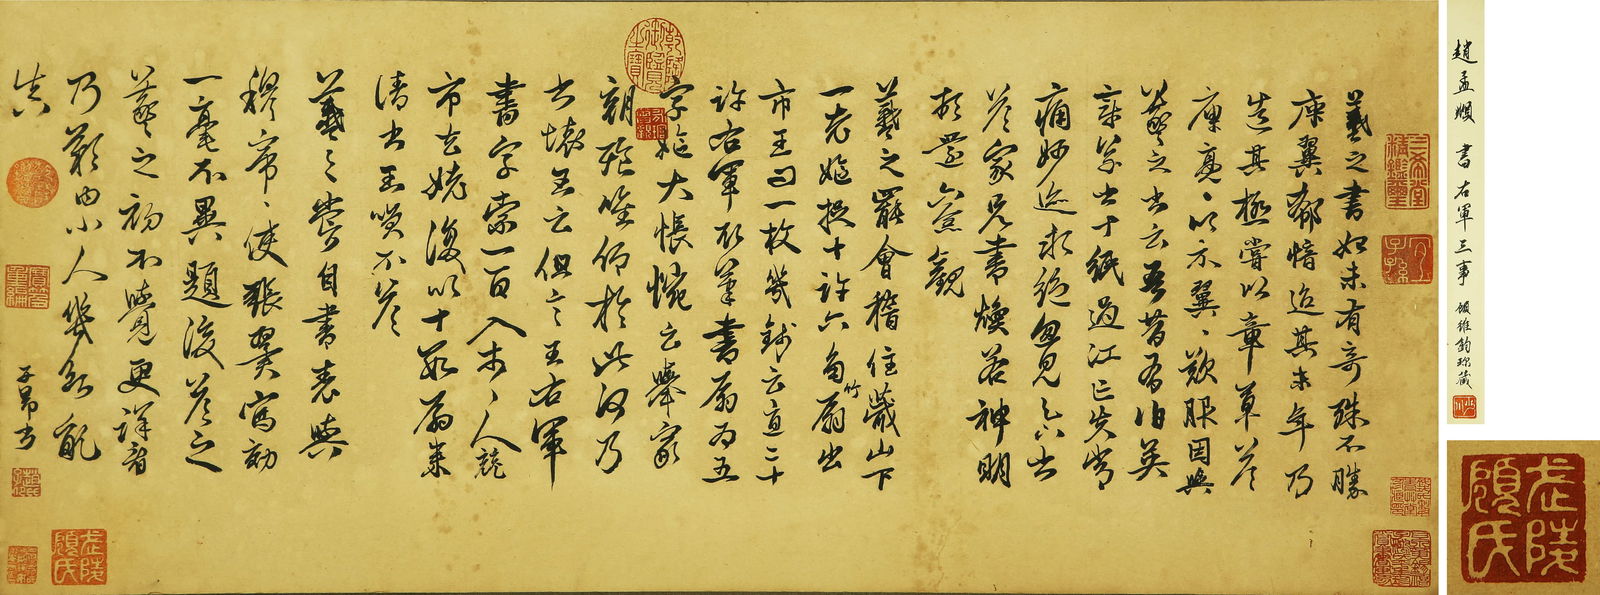 羲之書初未有奇殊不勝
庾翼郗愔迨其末年乃
造其極嘗以章草答
庾亮亮以示翼翼歎服因與
羲之書云吾昔有伯英
章草書十紙過江亡失常
痛妙迹永絕忽見足下書
答家兄書煥若神明
頓還舊觀
羲之罷會稽住蕺山下
一老嫗捉十許六角竹扇出
市王曰一枚幾錢云直二十
許右軍取筆書扇為五
字嫗大悵惋云舉家
朝飧唯仰於此何乃
書壞王云但言王右軍
書字索一百入市市人競
市去姥復以十數扇來
請書王笑不答
羲之嘗自書表與
穆帝帝使張翼寫効
一毫不異題後答之
羲之初不覺更詳看
乃歎曰小人幾欲亂
真
子昂書
趙孟頫 書 右軍三事
武陵
顧氏